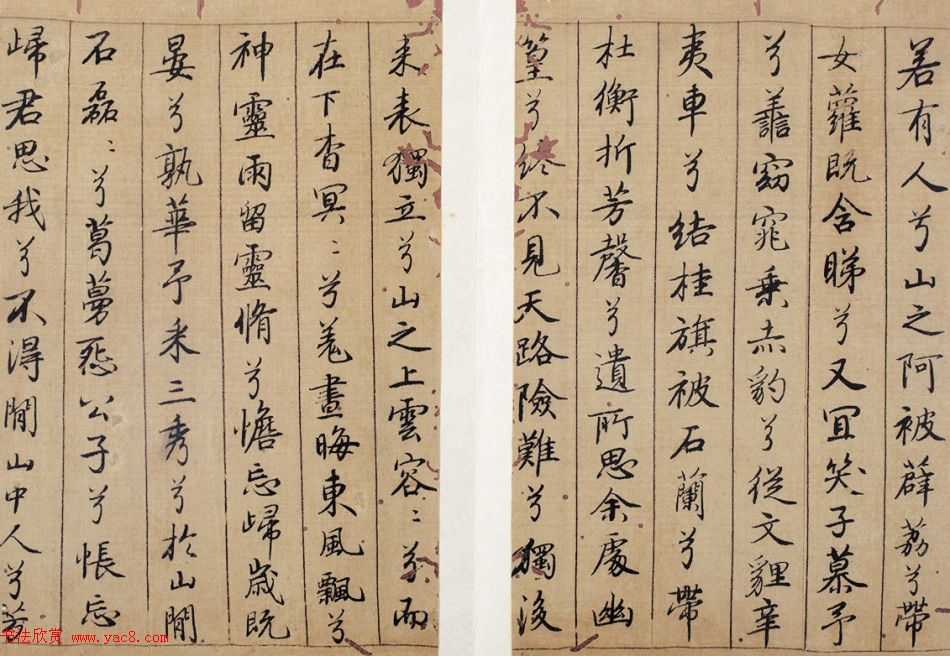 若有人兮山之阿被薜荔兮帶
女蘿既含睇兮又宜笑子慕予
兮譱窈窕乘赤豹兮從文貍辛
夷車兮結桂旗被石蘭兮帶
杜衡折芳馨兮遺所思余處幽
篁兮終不見天路險難兮獨後
来表獨立兮山之上雲容〻兮而
在下杳冥〻兮羌晝晦東風飄兮
神靈雨留靈脩兮憺忘歸歲既
晏兮孰華予采三秀兮於山閒
石磊〻兮葛蔓怨公子兮悵忘
歸君思我兮不得閒山中人兮芳
书法欣赏 www.yac8.com